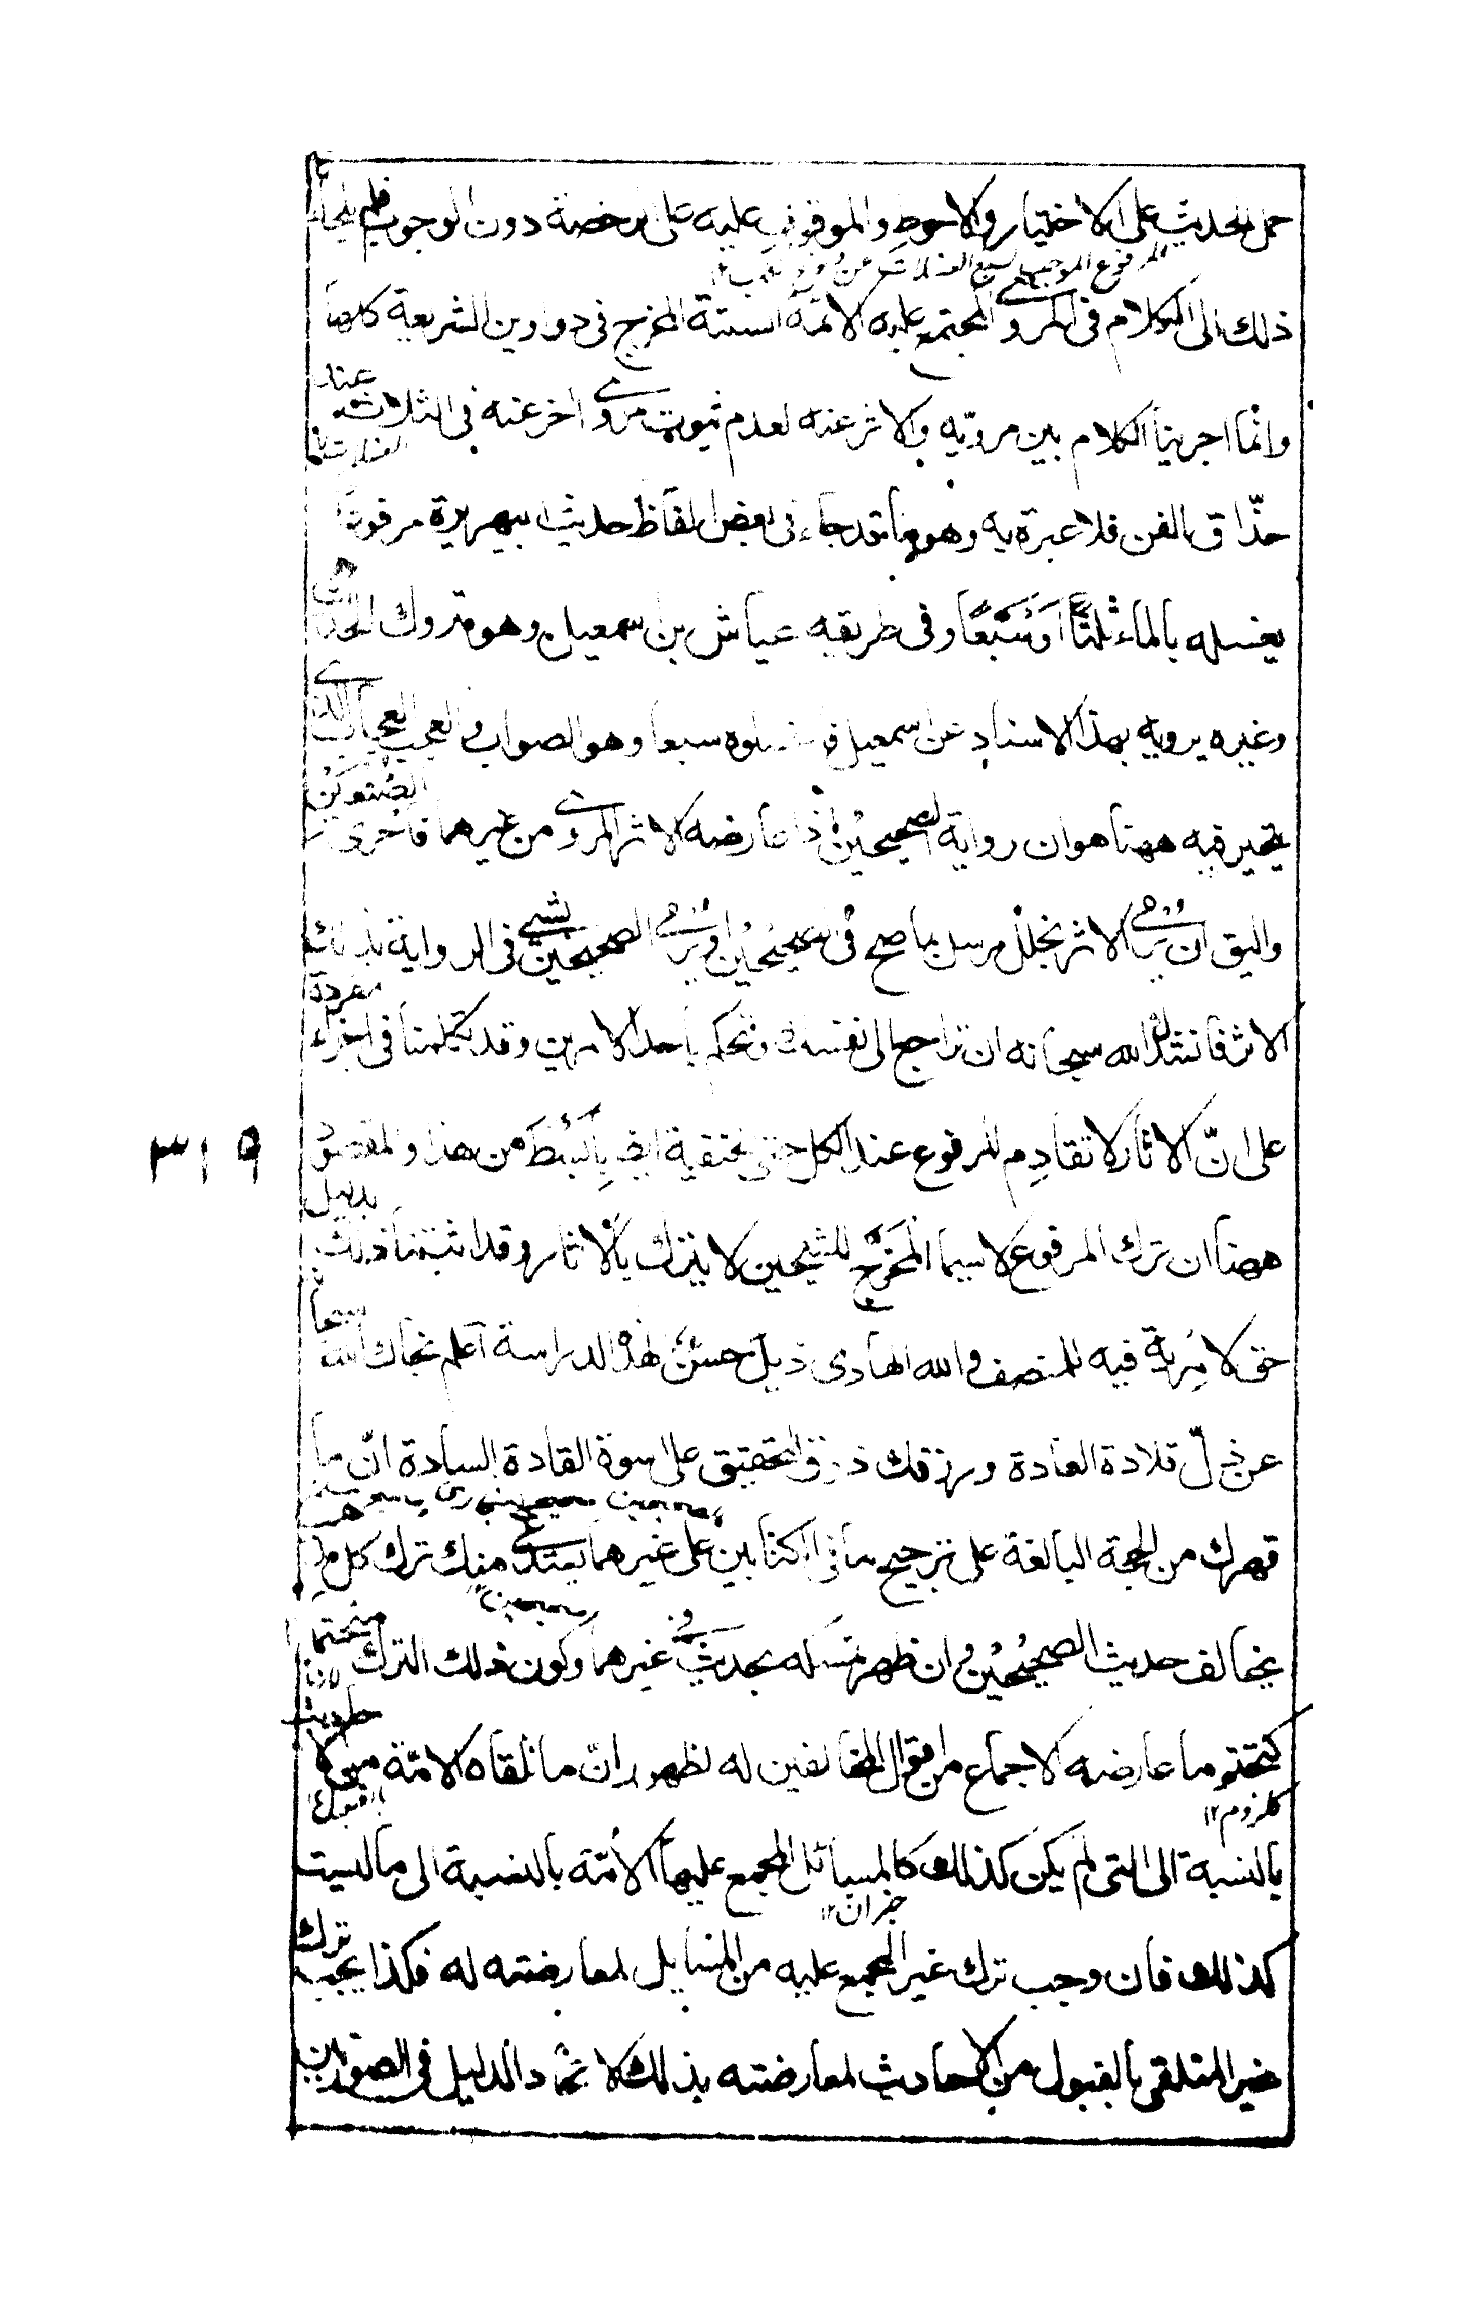 حمل الحديث على الاختيار والاحوط والموقوف عليه على الرخصة دون الوجوب فلم
المرفوع الموجب لسبع الغسلات عن ولوغ الكلب ١٢
ذلك الى الكلام فى المروى المجتمع عليه الائمة الستة المخرج فى دواوين الشريعة كلها
وانما اجرينا الكلام بين مرويه والاثر عنه لعدم ثبوت مروى اخر عنه فى الثلاث عند
حذّاق الفن فلا عبرة به وهو ما قد جاء فى بعض الفاظ حديث ابيهريرة مرفوعا
يغسله بالماء ثلثًا اوسَبْعًا وفى طريقه عياش بن اسمعيل وهو متروك الحديث
وغيره يرويه بهذا الاسناد عن اسمعيل فاغسلوه سبعا وهو الصواب والعجب العجاب الذى
يتحير فيه ههنا هو ان رواية الصحيحين اذا عارضه الاثر المروى من غيرهما فاحرى
واليق ان يرمى الاثر بخلل من رسل ما صح فى الصحيحين او يرمى الصحيحين بشىء فى الرواية بذلك
الاثر فانشدك الله سبحانه ان تراجع الى نفسك وتحكم باحد الامرين وقد تكلمنا فى اجزاء مفردة
على انّ الاثار لا تقادم المرفوع عند الكل حتى الحنفية ايضا بابسط من هذا والمقصود
ههنا ان ترك المرفوع لا سيما المخَرَّج للشيخين لا يترك بالاثار وقد اثبتنا ذلك بدليل
حق لا مرية فيه للمنصف والله الهادى ذيل حسن لهذه الدراسة اعلم نجاك الله سبحانه
عن ذلّ قلادة العادة ورزقك ذوق التحقيق على اسوة القادة السادة انّ ما
قهرك من الحجة البالغة على ترجيح ما فى الكتابين على غيرهما يستدعى منك ترك كل
يخالف حديث الصحيحين وان ظهر تمسكه بحديث فى غيرهما وكون ذلك الترك منحتما
كتحتم ما عارضه الاجماع من اقوال المخالفين له لظهور انّ ما تلقاه الامّة من حديث
كلزوم ١٢
بالقبول
بالنسبة الى التى لم يكن كذلك كالمسائل المجمع عليها الأمّة بالنسبة الى ما ليست
خبر ان ١٢
كذلك فان وجب ترك غير المجمع عليه من المسايل لمعارضته له فكذا يجب ترك
غير المتلقى بالقبول من الاحاديث لمعارضته بذلك لاتحاد الدليل فى الصورتين
٣١٩